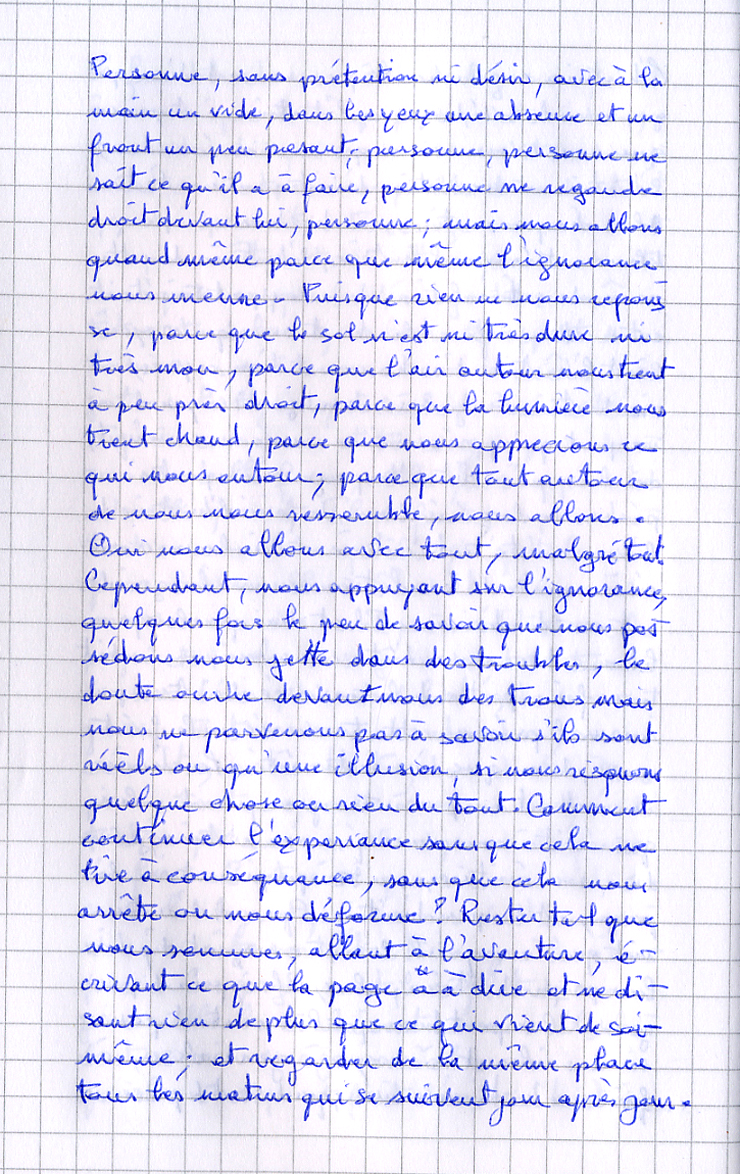 Personne, sans prétention ni désir, avec à la
main un vide, dans les yeux une absence et un
front un peu pesant; personne, personne ne
sait ce qu'il a à faire, personne ne regarde
droit devant lui, personne; mais nous allons
quand même parce que même l'ignorance
nous menne. Puisque rien ne nous repous
se, parce que le sol n'est ni très dure ni
très mou, parce que l'air autour nous tient
à peu près droit, parce que la lumière nous
tient chaud, parce que nous apprecions ce
qui nous entour; parce que tout autour
de nous nous ressemble, nous allons.
Oui nous allons avec tout, malgré tout.
Cependant, nous appuyant sur l'ignorance,
quelques fois le peu de savoir que nous pos
sédons nous jette dans des troubles, le
doute ouvre devant nous des trous mais
nous ne parvenons pas à savoir s'ils sont
réèls ou qu'une illusion, si nous risquons
quelque chose ou rien du tout. Comment
continuer l'experiance sans que cela ne
tire à conséquance, sans que cela nous
arrête ou nous déforme? Rester tel que
nous sommes, allant à l'avanture, é-
crivant ce que la page a à dire et ne di-
sant rien de plus que ce qui vient de soi-
même; et regarder de la même place
tous les matins qui se suivent jour après jour.